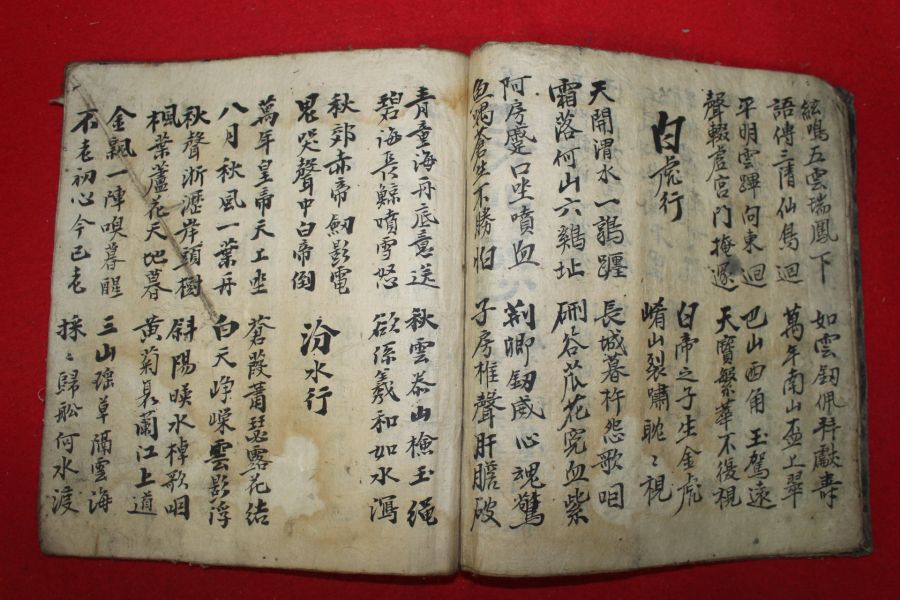 絃鳴五雲瑞鳳下 如雲釰佩拜獻壽
語傳三淸仙鳥迴 萬年南山盃上翠
平明雲蹕向東迴 巴山西角玉駕遠
聲輟虗宮門掩邃 天寶繁華不復視
白虎行
白帝之子生金虎
崤山裂嘯眈〻視
天開渭水一鶉躔 長城暮杵怨歌咽
霜落何山六鷄址 硎谷瓜花寃血紫
阿房口坐噴血 荊卿釰心魂驚
魚蝎蒼生不勝怕 子房椎聲肝膽破
靑童海舟底意送 秋雲泰山檢玉繩
碧海長鯨噴雪怒 欲係羲和如水瀉
秋郊赤帝釰影電
鬼哭聲中白帝倒
汾水行
萬年皇帝天上坐 蒼葭蕭瑟露花結
八月秋風一葉舟 白天崢嶸雲影浮
秋聲淅瀝岸頭樹 斜陽映水棹歌咽
楓葉蘆花天地暮 黃菊蘭江上道
金飆一陣嗅暮醒 三山瑤草隔雲海
不老初心今已老 採〻歸船何水渡